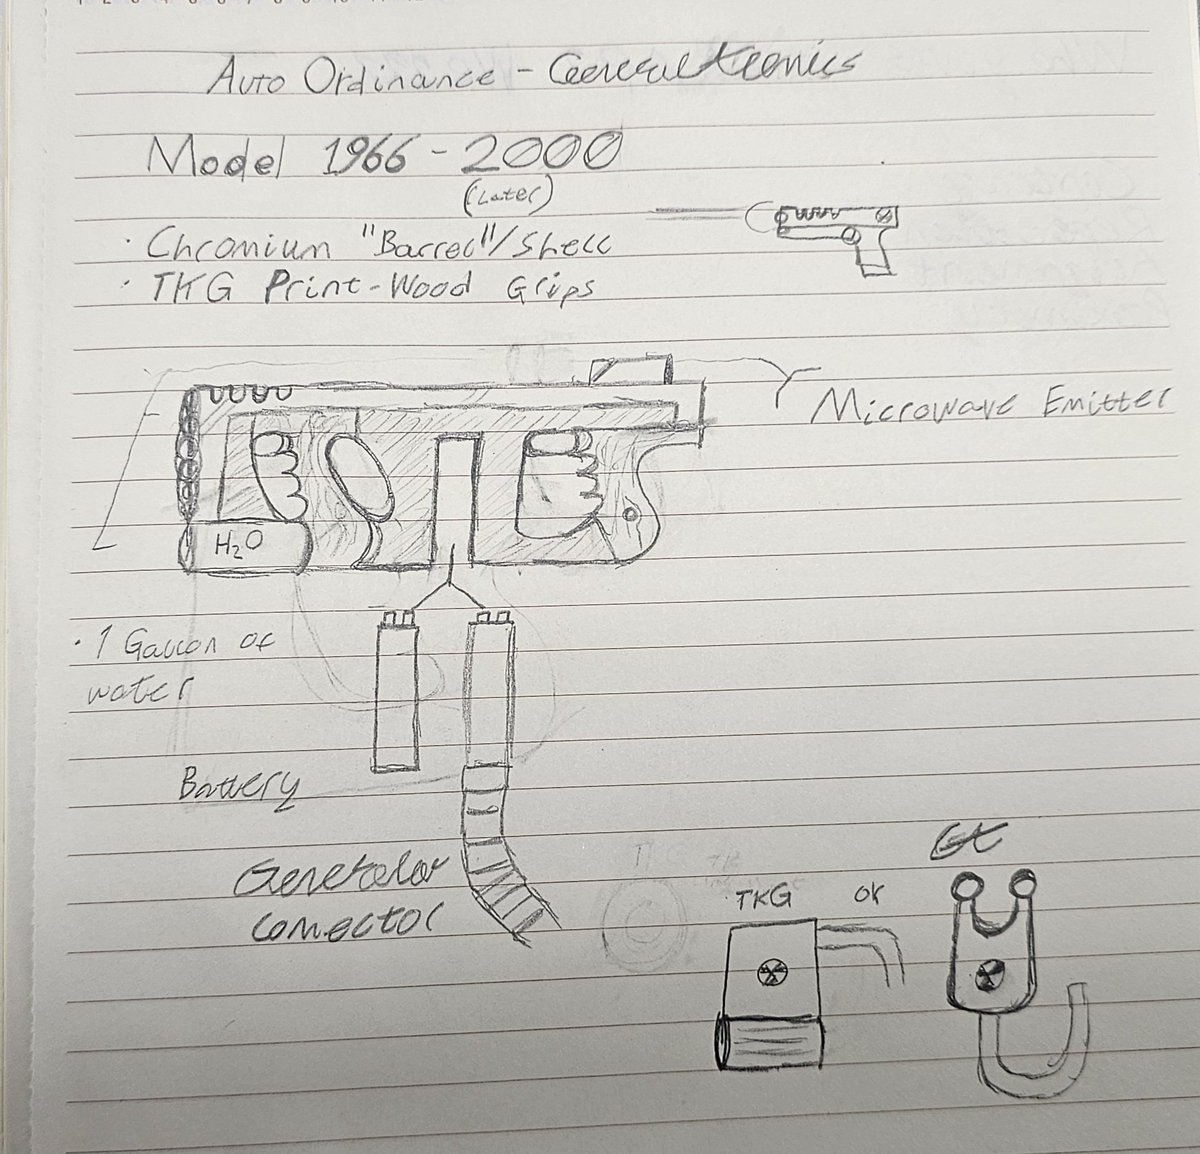 Auto Ordinance - Generaltronics
Model 1966 - 2000
(Later)
· Chromium "Barrel"/Shell
· TKG Print-Wood Grips
Microwave Emitter
H₂O
· 1 Gallon of
water
Battery
Generator
connector
TKG or
Gt